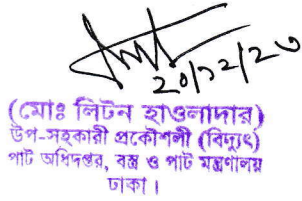 20/12/23
(মোঃ লিটন হাওলাদার)
উপ-সহকারী প্রকৌশলী (বিদ্যুৎ)
পাট অধিদপ্তর, বস্ত্র ও পাট মন্ত্রণালয়
ঢাকা।